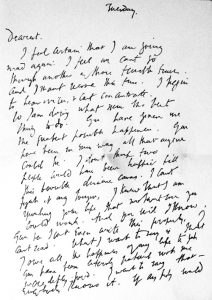 Tuesday.
Dearest,
I feel certain that I am going
mad again. I feel we can't go
through another of those terrible times.
And I shant recover this time. I begin
to hear voices, & cant concentrate.
So I am doing what seems the best
thing to do. You have given me
the greatest possible happiness. You
have been in every way all that anyone
could be. I dont think two
people could have been happier till
this terrible disease came. I cant
fight it any longer, I know that I am
spoiling your life, that without me you
could work. And you will I know.
You see I cant even write this properly. I
cant read. What I want to say is
I owe all the happiness of my life to you.
You have been entirely patient with me
&
I want to say that
everybody knows it. If anybody could